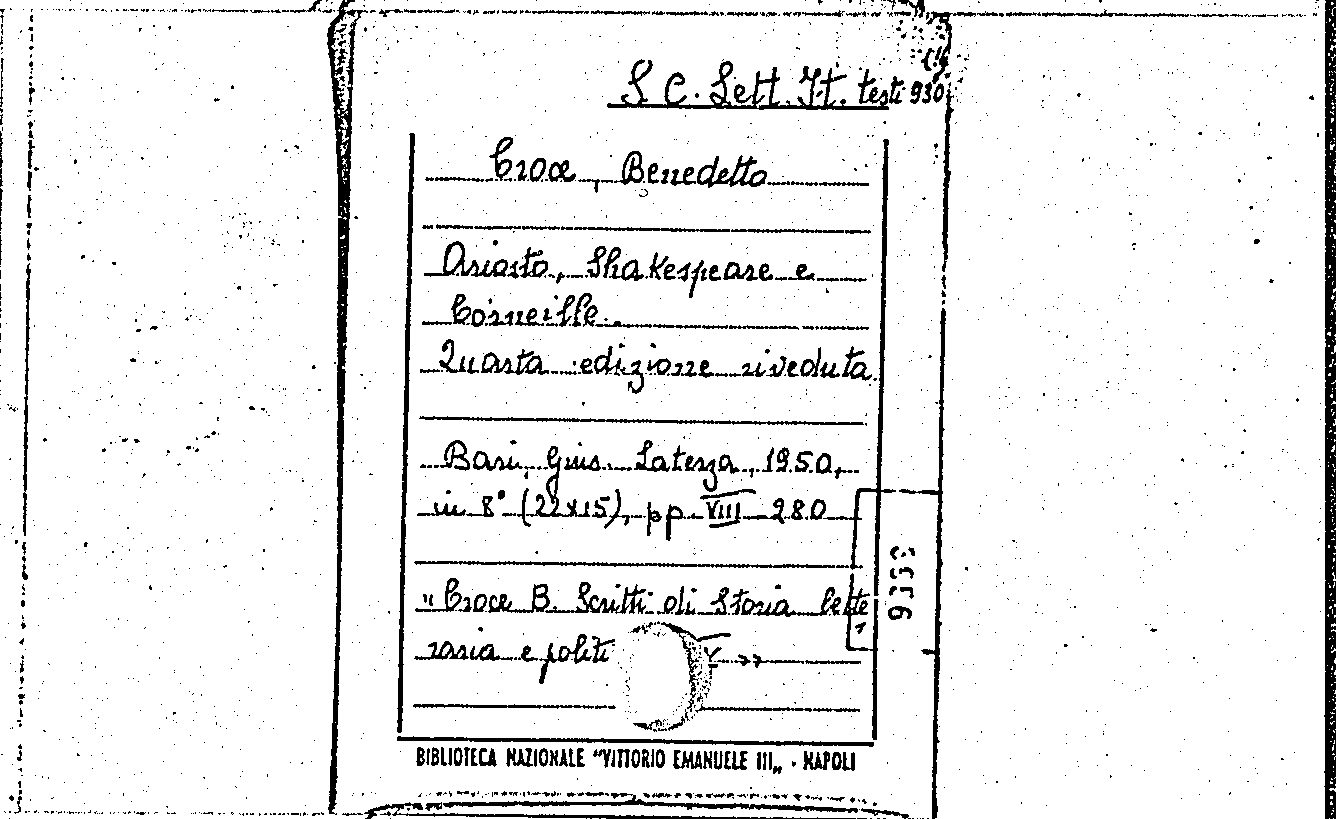 S. C. Lett. It. testi 930
Croce, Benedetto
Ariosto, Shakespeare e
Corneille.
Quarta edizione riveduta
Bari, Gius. Laterza, 1950,
in 8° (22x15), pp. VIII 280
"Croce B. Scritti di Storia lette
raria e politi »
BIBLIOTECA NAZIONALE "VITTORIO EMANUELE III„ - NAPOLI